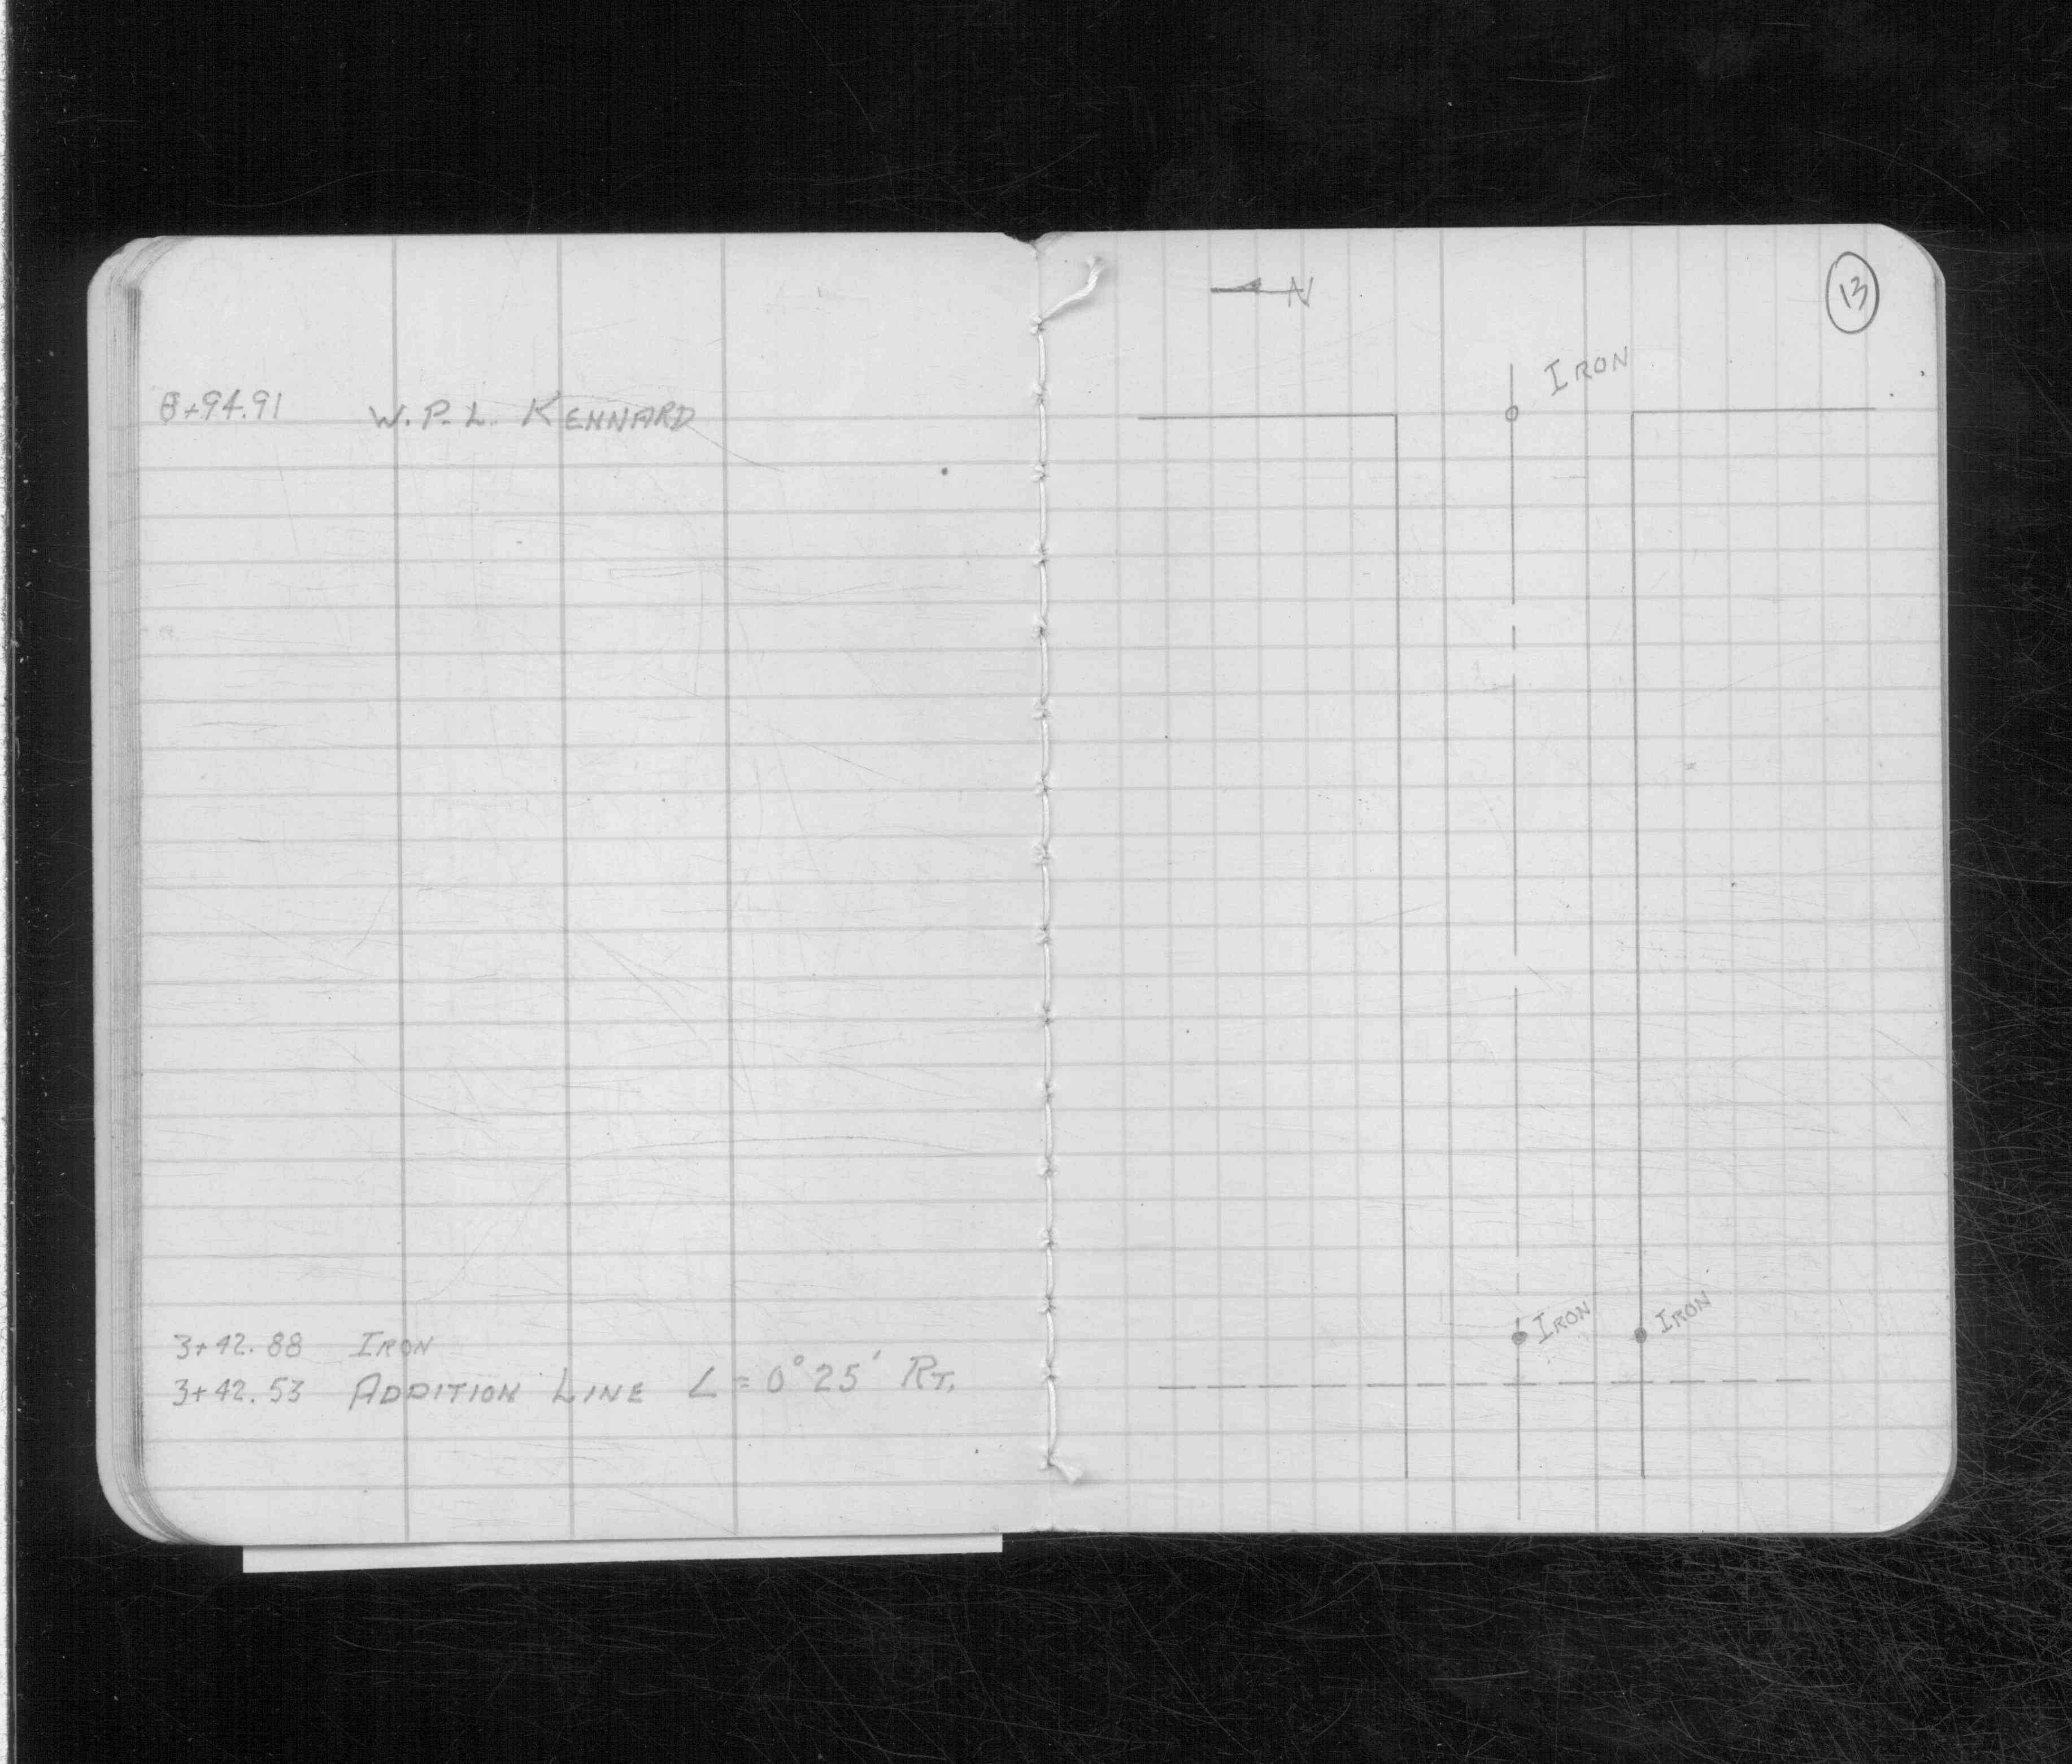 8+94.91 W.P.L. KENNARD
3+42.88 IRON
3+42.53 ADDITION LINE ∠=0°25' RT.
N
13
IRON
IRON
IRON